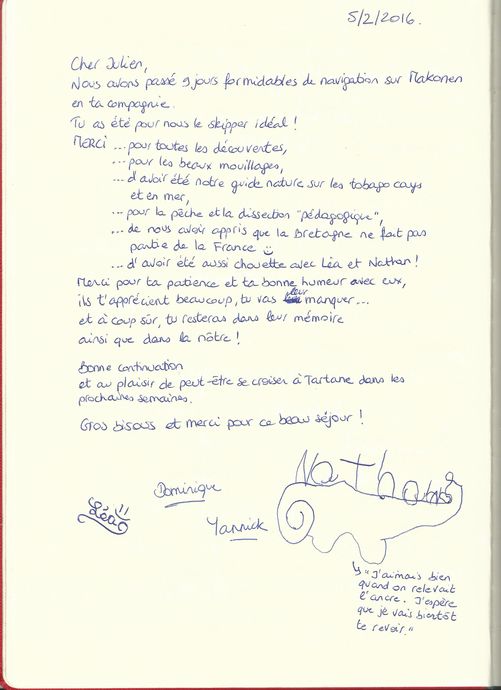 5/2/2016.
Cher Julien,
Nous avons passé 9 jours formidables de navigation sur Makonen
en ta compagnie.
Tu as été pour nous le skipper idéal !
MERCI ... pour toutes les découvertes,
... pour les beaux mouillages,
... d'avoir été notre guide nature sur les tobago cays
et en mer,
... pour la pêche et la dissection "pédagogique",
... de nous avoir appris que la Bretagne ne fait pas
partie de la France ☺
... d'avoir été aussi chouette avec Léa et Nathan !
Merci pour ta patience et ta bonne humeur avec eux,
ils t'apprécient beaucoup, tu vas leur manquer...
et à coup sûr, tu resteras dans leur mémoire
ainsi que dans la nôtre !
Bonne continuation
et au plaisir de peut-être se croiser à Tartane dans les
prochaines semaines.
Gros bisous et merci pour ce beau séjour !
Nathan
Dominique
Léa !!
Yannick
↳ "J'aimais bien
quand on relevait
l'ancre. J'espère
que je vais bientôt
te revoir."